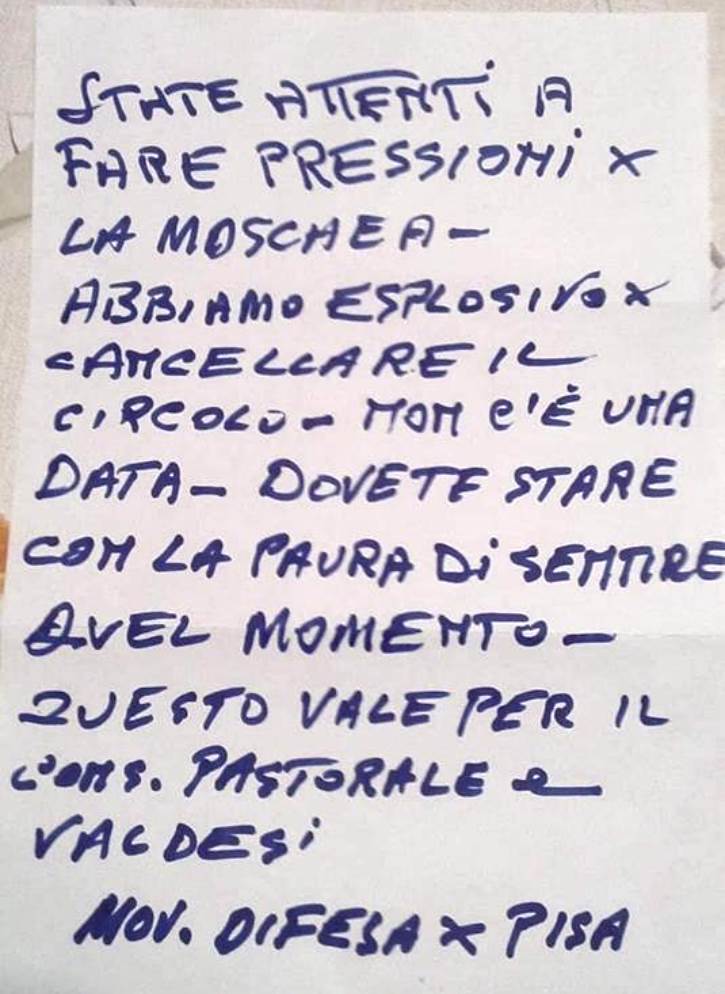 STATE ATTENTI A
FARE PRESSIONI X
LA MOSCHEA -
ABBIAMO ESPLOSIVO X
CANCELLARE IL
CIRCOLO - NON C'È UNA
DATA - DOVETE STARE
CON LA PAURA Di SENTIRE
QUEL MOMENTO -
QUESTO VALE PER IL
CONS. PASTORALE e
VALDESi
MOV. DIFESA X PISA